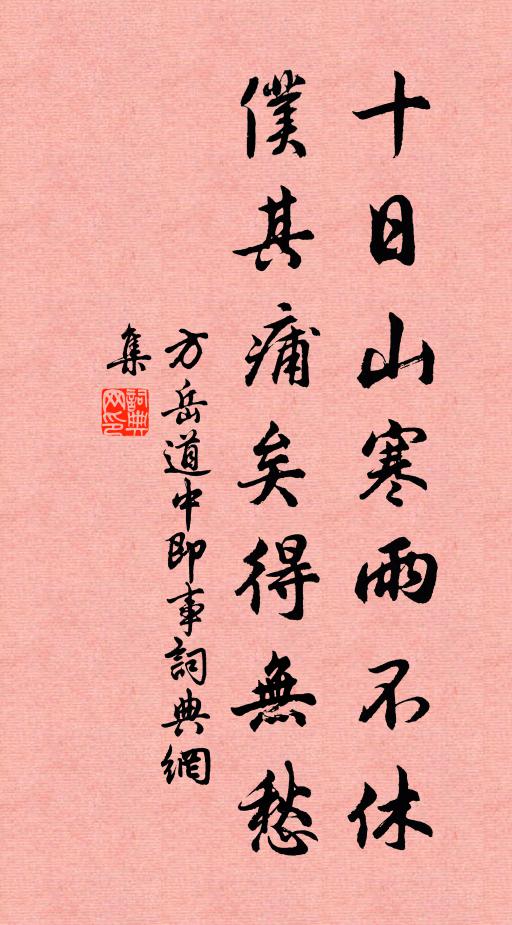 十日山寒雨不休
僕其痡矣得無愁
方岳道中即事詞典網
集
詞典网印